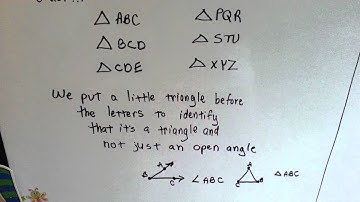 △ ABC △ PQR
△ BCD △ STU
△ CDE △ XYZ
We put a little triangle before
the letters to identify
that it's a triangle and
not just an open angle
A
B C ∠ ABC
A
C B △ ABC